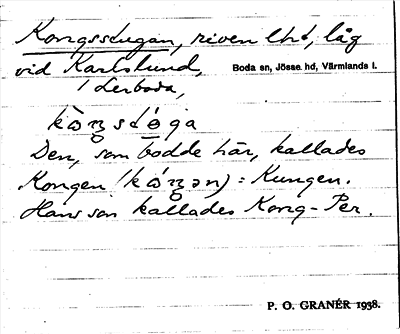 Kongsstugan, riven lht, låg
vid Karlslund,
Boda sn, Jösse hd, Värmlands l.
i Lerboda,
Den, som bodde här, kallades
Kongen = Kungen.
Hans son kallades Kong-Per.
P. O. GRANÉR 1938.